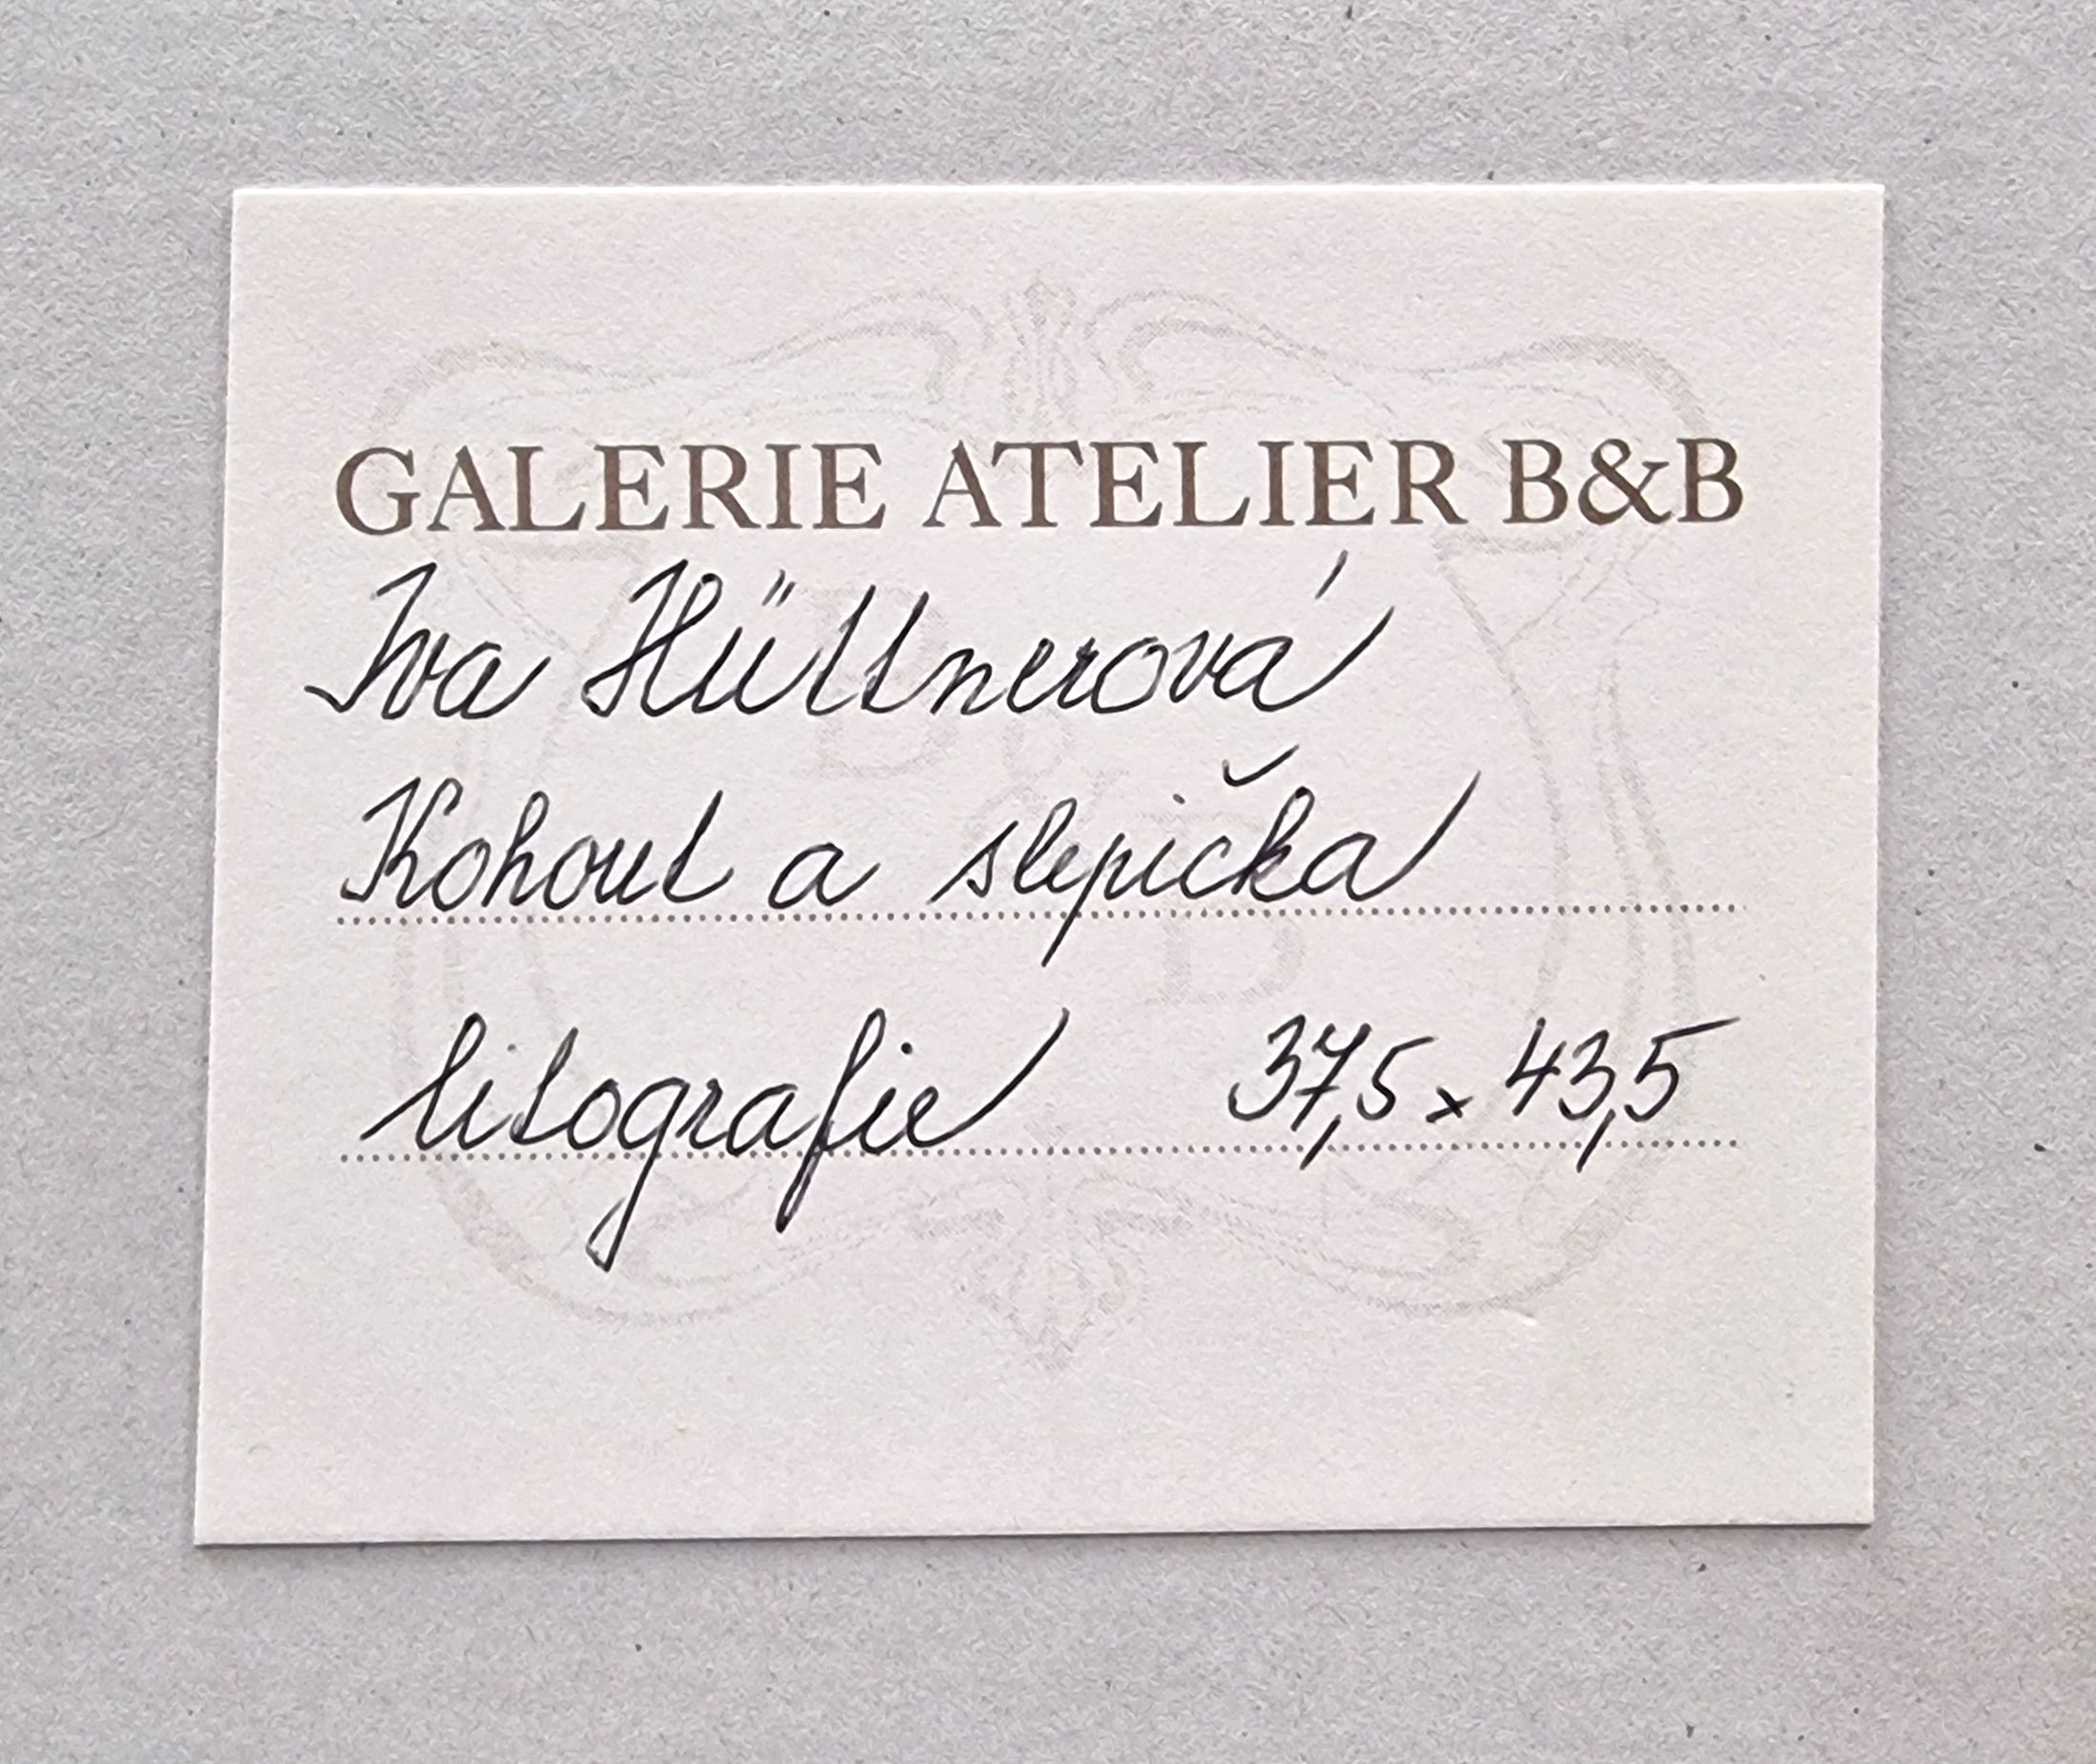 GALERIE ATELIER B&B
Iva Hüttnerová
Kohout a slepička
litografie 37,5 x 43,5